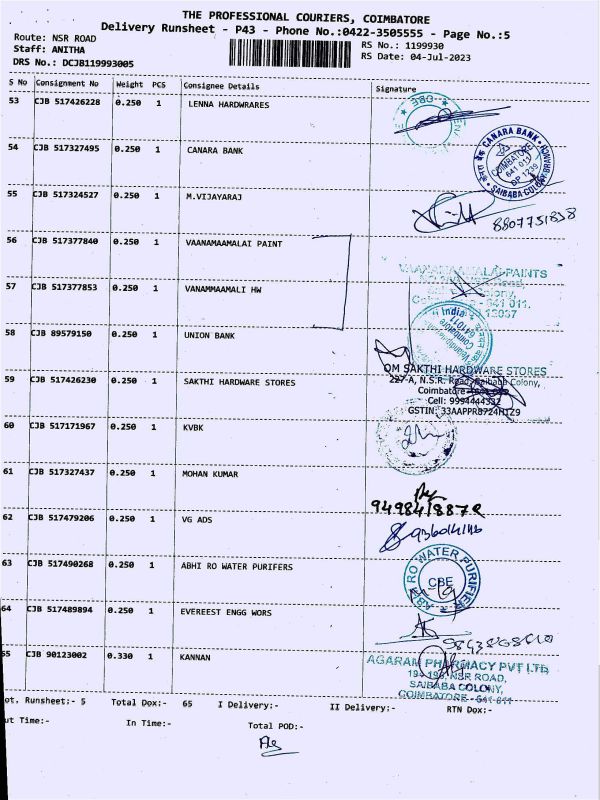 THE PROFESSIONAL COURIERS, COIMBATORE
Delivery Runsheet - P43 - Phone No.:0422-3505555 - Page No.:5
Route: NSR ROAD
Staff: ANITHA
DRS No.: DCJB119993005
RS No.: 1199930
RS Date: 04-Jul-2023
S No Consignment No Weight PCS Consignee Details Signature
53 CJB 517426228 0.250 1 LENNA HARDWRARES
CBE
54 CJB 517327495 0.250 1 CANARA BANK
CANARA BANK
COIMBATORE
641 011
DP 1219
SAIBABA COLONY BRANCH
55 CJB 517324527 0.250 1 M.VIJAYARAJ
8807751838
56 CJB 517377840 0.250 1 VAANAMAAMALAI PAINT
57 CJB 517377853 0.250 1 VANAMMAAMALI HW
58 CJB 89579150 0.250 1 UNION BANK
59 CJB 517426230 0.250 1 SAKTHI HARDWARE STORES
OM SAKTHI HARDWARE STORES
227-A, N.S.R. Road, Saibaba Colony,
Coimbatore
Cell: 9994444332
GSTIN: 33AAPPR8724H1Z9
60 CJB 517171967 0.250 1 KVBK
61 CJB 517327437 0.250 1 MOHAN KUMAR
62 CJB 517479206 0.250 1 VG ADS
63 CJB 517490268 0.250 1 ABHI RO WATER PURIFERS
RO WATER PURIFIER
CBE
64 CJB 517489894 0.250 1 EVEREEST ENGG WORS
55 CJB 90123002 0.330 1 KANNAN
AGARAM PHARMACY PVT LTD
NSR ROAD,
SAIBABA COLONY,
COIMBATORE - 641 011
ot. Runsheet:- 5 Total Dox:- 65 I Delivery:- II Delivery:- RTN Dox:-
ut Time:- In Time:- Total POD:-